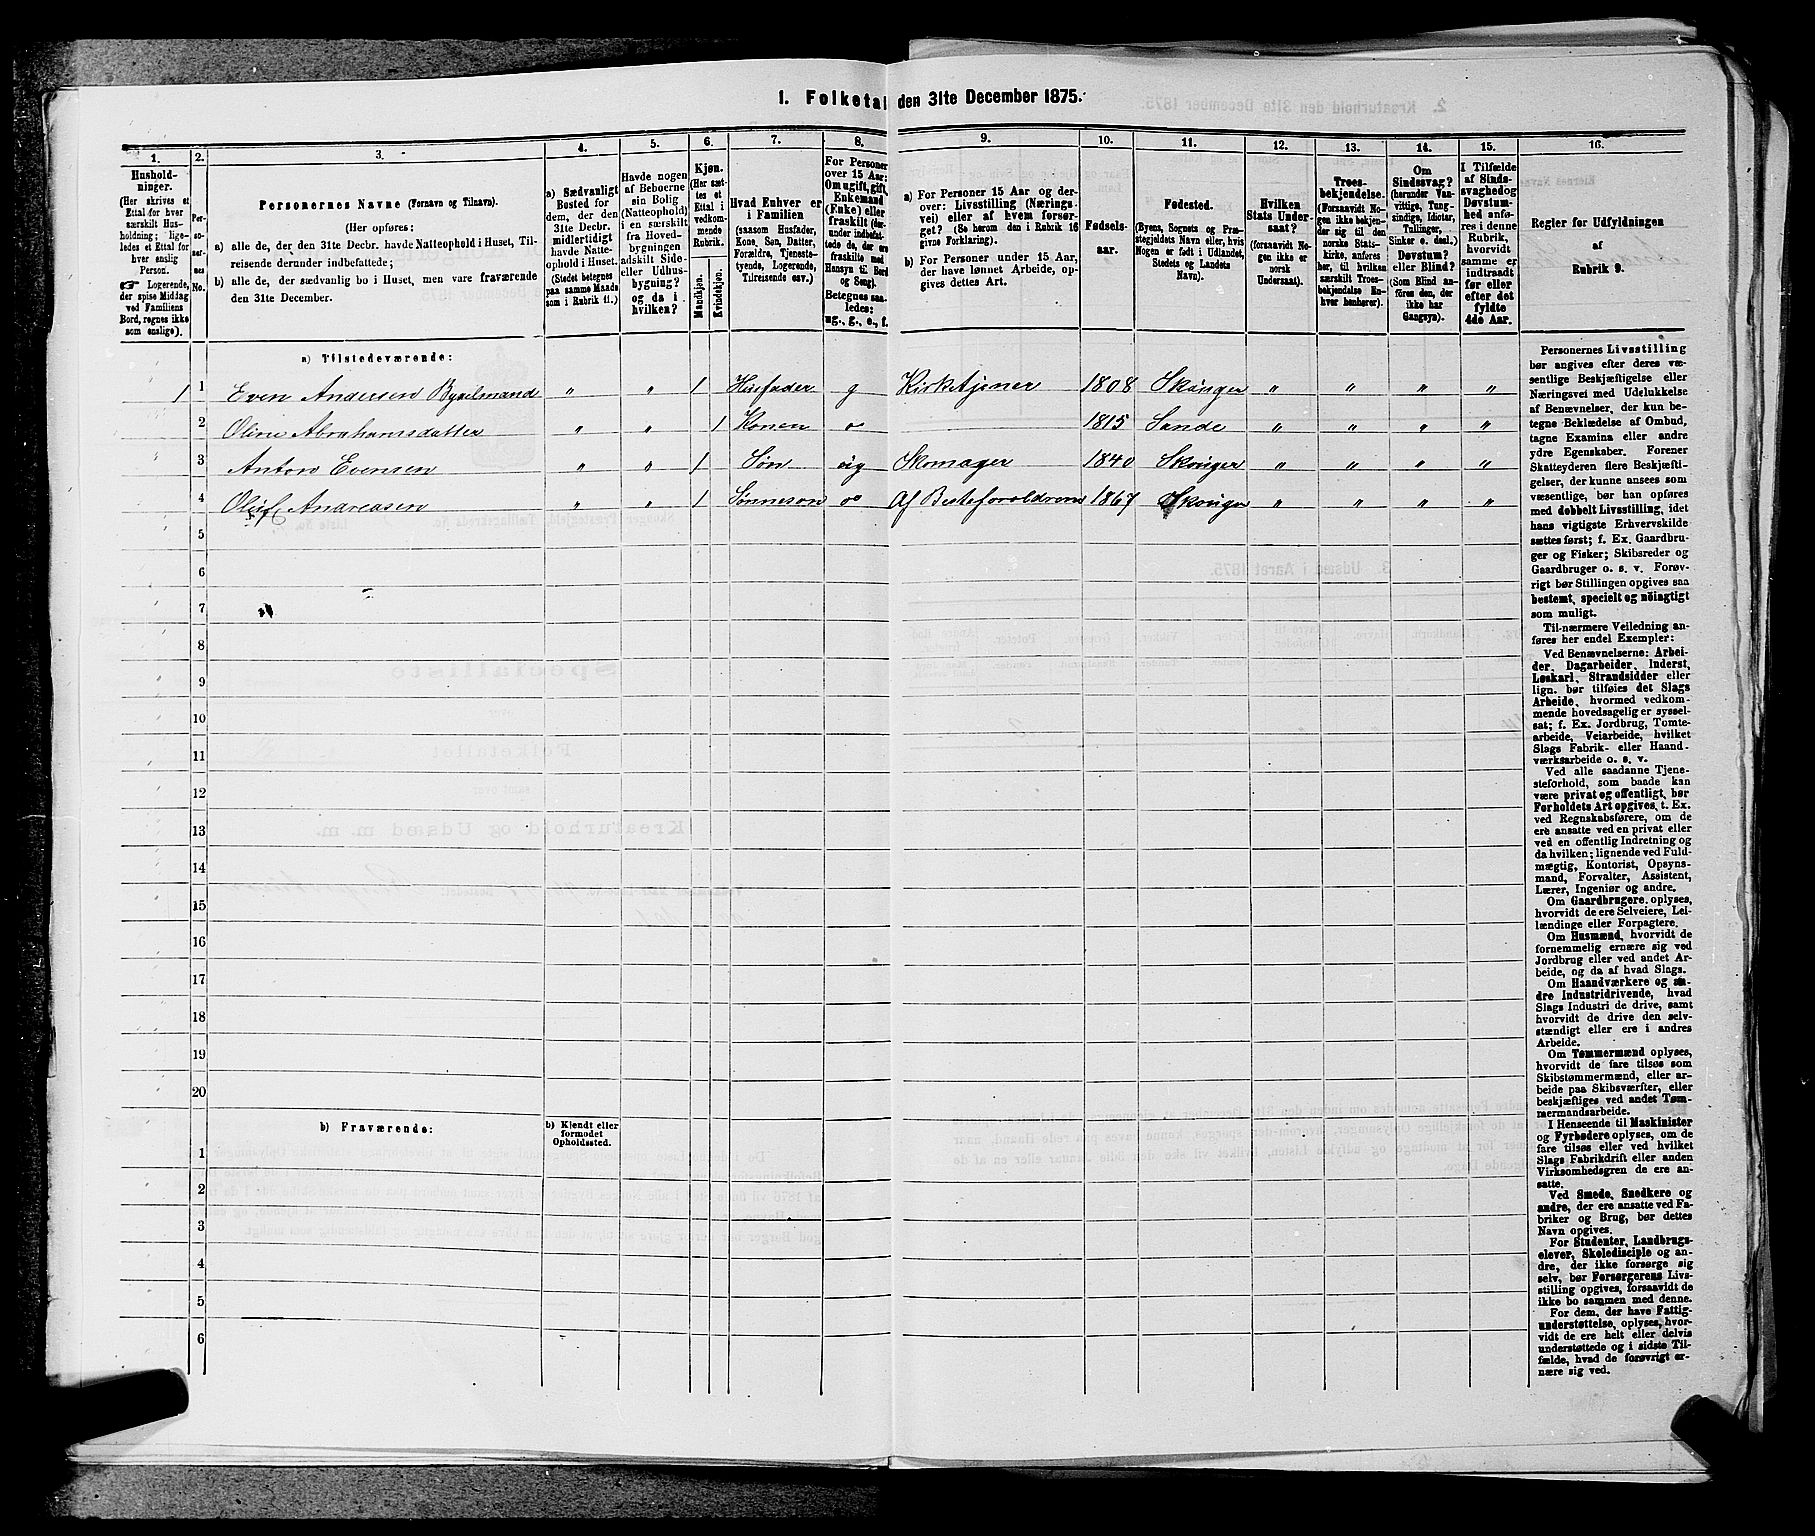 1. Folketal den 31te December 1875.
1.
Hushold-
ninger.
(Her skrives et
Ettal for hver
særskilt Hus-
holdning; lige-
ledes et Ettal for
hver enslig
Person.
☞ Logerende,
der spise Middag
ved Familiens
Bord, regnes ikke
som enslige).
2.
Per-
so-
ner-
nes
No.
3.
Personernes Navne (Fornavn og Tilnavn).
(Her opføres:
a) alle de, der den 31te Decbr. havde Natteophold i Huset, Til-
reisende derunder indbefattede;
b) alle de, der sædvanlig bo i Huset, men vare fraværende
den 31te December.
4.
a) Sædvanligt
Bosted for
dem, der den
31te Decbr.
midlertidigt
havde Natte-
ophold i Huset.
(Stedet betegnes
paa samme Maade
som i Rubrik 11.)
5.
Havde nogen
af Beboerne
sin Bolig
(Natteophold)
i en særskilt
fra Hoved-
bygningen
adskilt Side-
eller Udhus-
bygning?
og da i
hvilken?
6.
Kjøn.
(Her sæt-
tes et
Ettal i
vedkom-
mende
Rubrik.
Mandkjøn.
Kvindekjøn.
7.
Hvad Enhver er
i Familien
(saasom Husfader,
Kone, Søn, Datter,
Forældre, Tjeneste-
tyende, Logerende,
Tilreisende osv.)
8.
For Personer
over 15 Aar:
Om ugift, gift,
Enkemand
(Enke) eller
fraskilt (der-
under indbefat-
tede de, der ere
fraskilte med
Hensyn til Bord
og Seng).
Betegnes saa-
ledes:
ug., g., e., f.
9.
a) For Personer 15 Aar og der-
over: Livsstilling (Nærings-
vei) eller af hvem forsør-
get? (Se herom den i Rubrik 16
givne Forklaring).
b) For Personer under 15 Aar,
der have lønnet Arbeide, op-
gives dettes Art.
10.
Fødsels-
aar.
11.
Fødested.
(Byens, Sognets og Præ-
stegjeldets Navn eller, hvis
Nogen er født i Udlandet,
Stedets og Landets
Navn).
12.
Hvilken
Stats Under-
saat?
(forsaavidt No-
gen ikke er
norsk
Undersaat).
13.
Troes-
bekjendelse.
(Forsaavidt No-
gen ikke bekjen-
der sig til den
norske Stats-
kirke, anføres
her, til hvilken
særskilt Troes-
bekjendelse En-
hver henhører).
14.
Om
Sindssvag?
(herunder Van-
vittige, Tung-
sindige, Idioter,
Tullinger,
Sinker o. desl.)
Døvstum?
eller Blind?
(Som Blind an-
føres den, der
ikke har
Gangsyn).
15.
I Tilfælde
af Sinds-
svaghed og
Døvstum-
hed anfø-
res i denne
Rubrik,
hvorvidt
samme er
indtraadt
før eller
efter det
fyldte
4de Aar.
16.
Regler for Udfyldningen
af
Rubrik 9.
a) Tilstedeværende:
1 1 Even Andersen Bygelmand „ „ 1 Husfader g Kirketjener 1808 Skouger „ „ „ „
2 Oline Abrahamsdatter „ „ 1 Konen o 1815 Sande „ „ „ „
3 Anton Evensen „ „ 1 Søn ug Skomager 1840 Skouger „ „ „ „
4 Oluf Andreasen „ „ 1 Sønneson oo Af Besteforældrene 1867 Skouger „ „ „ „
5
6
7
8
9
10
11
12
13
14
15
16
17
18
19
20
b) Fraværende:
b) Kjendt eller
formodet
Opholdssted.
1
2
3
4
5
6
Personernes Livsstilling
bør angives efter deres væ-
sentlige Beskjæftigelse eller
Næringsvei med Udelukkelse
af Benævnelser, der kun be-
tegne Beklædelse af Ombud,
tagne Examina eller andre
ydre Egenskaber. Forener
Skatteyderen flere Beskjæfti-
gelser, der kunne ansees som
væsentlige, bør han opføres
med dobbelt Livsstilling, idet
hans vigtigste Erhvervskilde
sættes først; f. Ex. Gaardbru-
ger og Fisker; Skibsreder og
Gaardbruger o. s. v. Forøv-
rigt bør Stillingen opgives saa
bestemt, specielt og nöiagtigt
som muligt.
Til nærmere Veiledning an-
føres her endel Exempler:
Ved Benævnelserne: Arbei-
der, Dagarbeider, Inderst,
Løskarl, Strandsidder eller
lign. bør tilføies det Slags
Arbeide, hvormed vedkom-
mende hovedsagelig er syssel-
sat; f. Ex. Jordbrug, Tomte-
arbeide, Veiarbeide, hvilket
Slags Fabrik- eller Haand-
værksarbeide o. s. v.
Ved alle saadanne Tjene-
steforhold, som baade kan
være privat og offentligt, bør
Forholdets Art opgives, t. Ex.
ved Regnskabsførere, om de
ere ansatte ved en privat eller
ved en offentlig Indretning og
da hvilken; lignende ved Fuld-
mægtig, Kontorist, Opsyns-
mand, Forvalter, Assistent,
Lærer, Ingeniør og andre.
Om Gaardbrugere oplyses,
hvorvidt de ere Selveiere, Lei-
lændinge eller Forpagtere.
Om Husmænd, hvorvidt de
fornemmelig ernære sig ved
Jordbrug eller ved andet Ar-
beide, og da af hvad Slags.
Om Haandværkere og an-
dre Industridrivende, hvad
Slags Industri de drive, samt
hvorvidt de drive den selv-
stændigt eller ere i andres
Arbeide.
Om Tømmermænd oplyses,
hvorvidt de fare tilsøs som
Skibstømmermænd, eller ar-
beide paa Skibsværfter, eller
beskjæftiges ved andet Tøm-
mermandsarbeide.
I Henseende til Maskinister
og Fyrbødere oplyses, om de
fare tilsøs eller ved hvilket
Slags Fabrikdrift eller anden
Virksomhedsgren de ere an-
satte.
Ved Smede, Snedkere og
andre, der ere ansatte ved Fa-
briker og Brug, bør dettes
Navn opgives.
For Studenter, Landbrugs-
elever, Skoledisciple og an-
dre, der ikke forsørge sig
selv, bør Forsørgerens Livs-
stilling opgives, forsaavidt de
ikke bo sammen med denne.
For dem, der have Fattig-
understøttelse, oplyses, hvor-
vidt de ere helt eller delvis
understøttede og i sidste Til-
fælde, hvad de forøvrigt er-
nære sig ved.